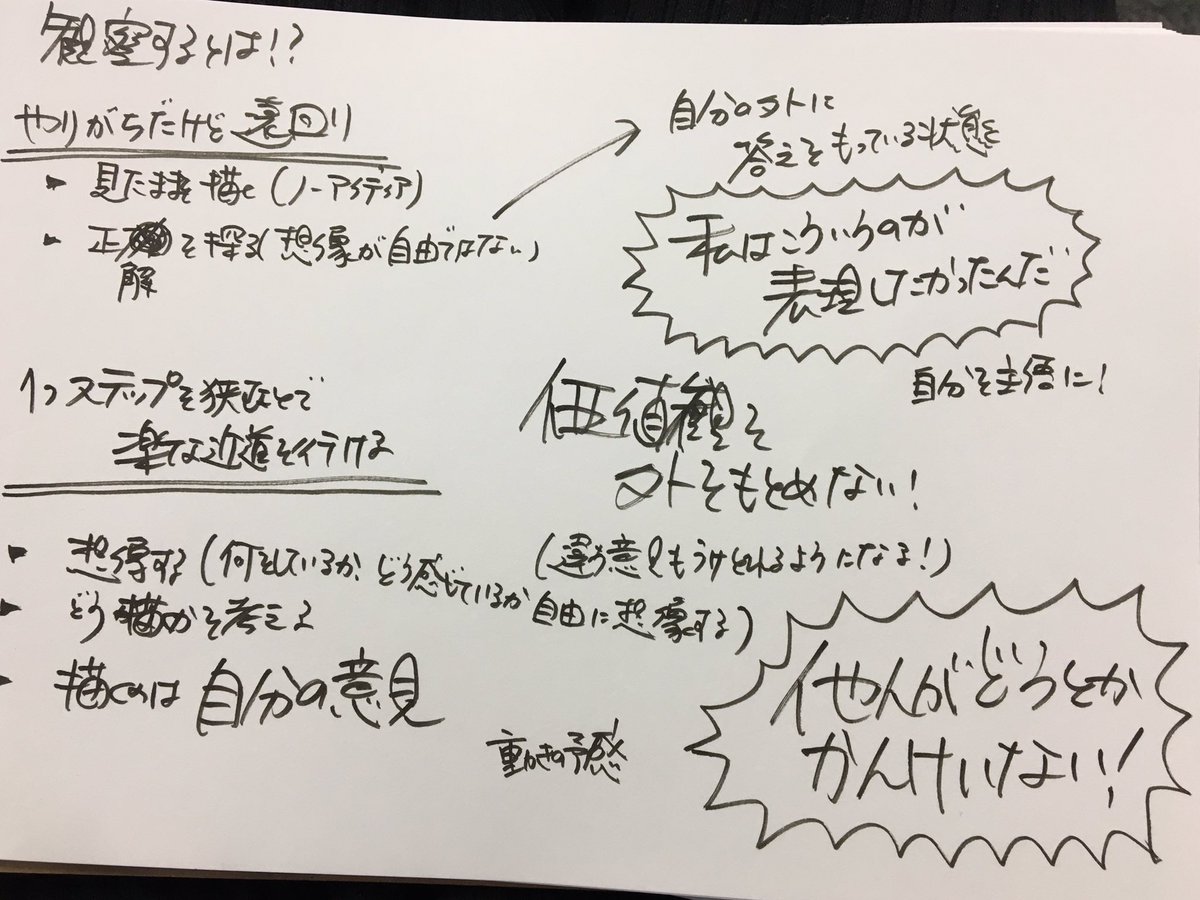 観察するとは!?
やりがちだけど遠回り
見たまま描く(ノーアイディア)
正 を探る(想像が自由ではない)
解
自分の外に
答えをもっている状態を
私はこういうのが
表現したかったんだ
自分を主語に!
1つステップを挟むことで
楽な近道を行ける
価値観を
外をもとめない!
(違う意見もうけとれるようになる!)
想像する(何をしているか、どう感じているか
自由に想像する)
どう描かを考える
描くのは自分の意見
動きの予感
他人がどうとか
かんけいない!